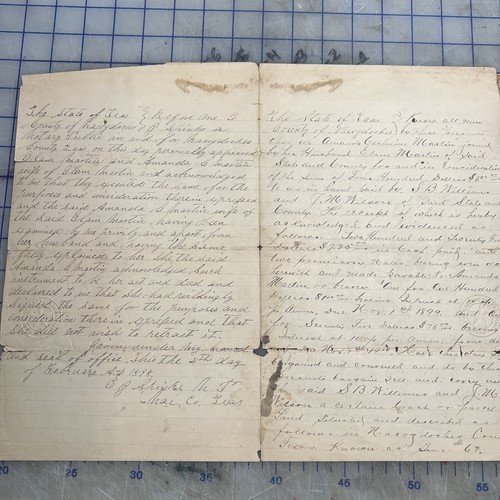 The State of Texas } Before Me E
County of Nacogdoches } J Spinks a
Notary Public in and for Nacogdoches
County Texas on this day personally appeared
Elam Martin and Amanda C Martin
wife of Elam Martin and acknowledged
to me that they executed the same for the
purposes and consideration therein expressed
and the said Amanda C Martin wife of
the said Elam Martin having been
examined by me privily and apart from
her husband and having the same
fully explained to her she the said
Amanda C Martin acknowledged such
instrument to be her act and deed and
declared to me that she had willingly
signed the same for the purposes and
consideration therein expressed and that
she did not wish to retract it.
Given under My hand
and seal of office this the 4th day
of February AD 1898.
E J Spinks N P
Nac. Co. Texas
The State of Texas } Know all men
County of Nacogdoches } by these presents
that we Amanda Catherine Martin joined
by her Husband Elam Martin of said
State and County in and for Consideration
of the sum of Four Hundred Dollars $400
to us in hand paid by S B Williams
and J M Wilson of said State and
County the receipt of which is hereby
acknowledged and
follows Two Hundred and Twenty five
Dollars $225 Cash paid and
two promissory notes bearing even date
herewith and made payable to Amanda
Martin or bearer One for One Hundred
Dollars $100 bearing Interest at 10
pr annum due Nov 1st 1899. and One
for Seventy Five Dollars $75 bearing
Interest at 10 per annum from date
Have
bargained and conveyed and do by these
presents bargain sell and convey unto
said S B Williams and J M
Wilson a certain tract or parcel
Land Situated and described as
follows in Nacogdoches County
Texas Known as Sur. # 67.
20 25 30 35 40 45 50 55